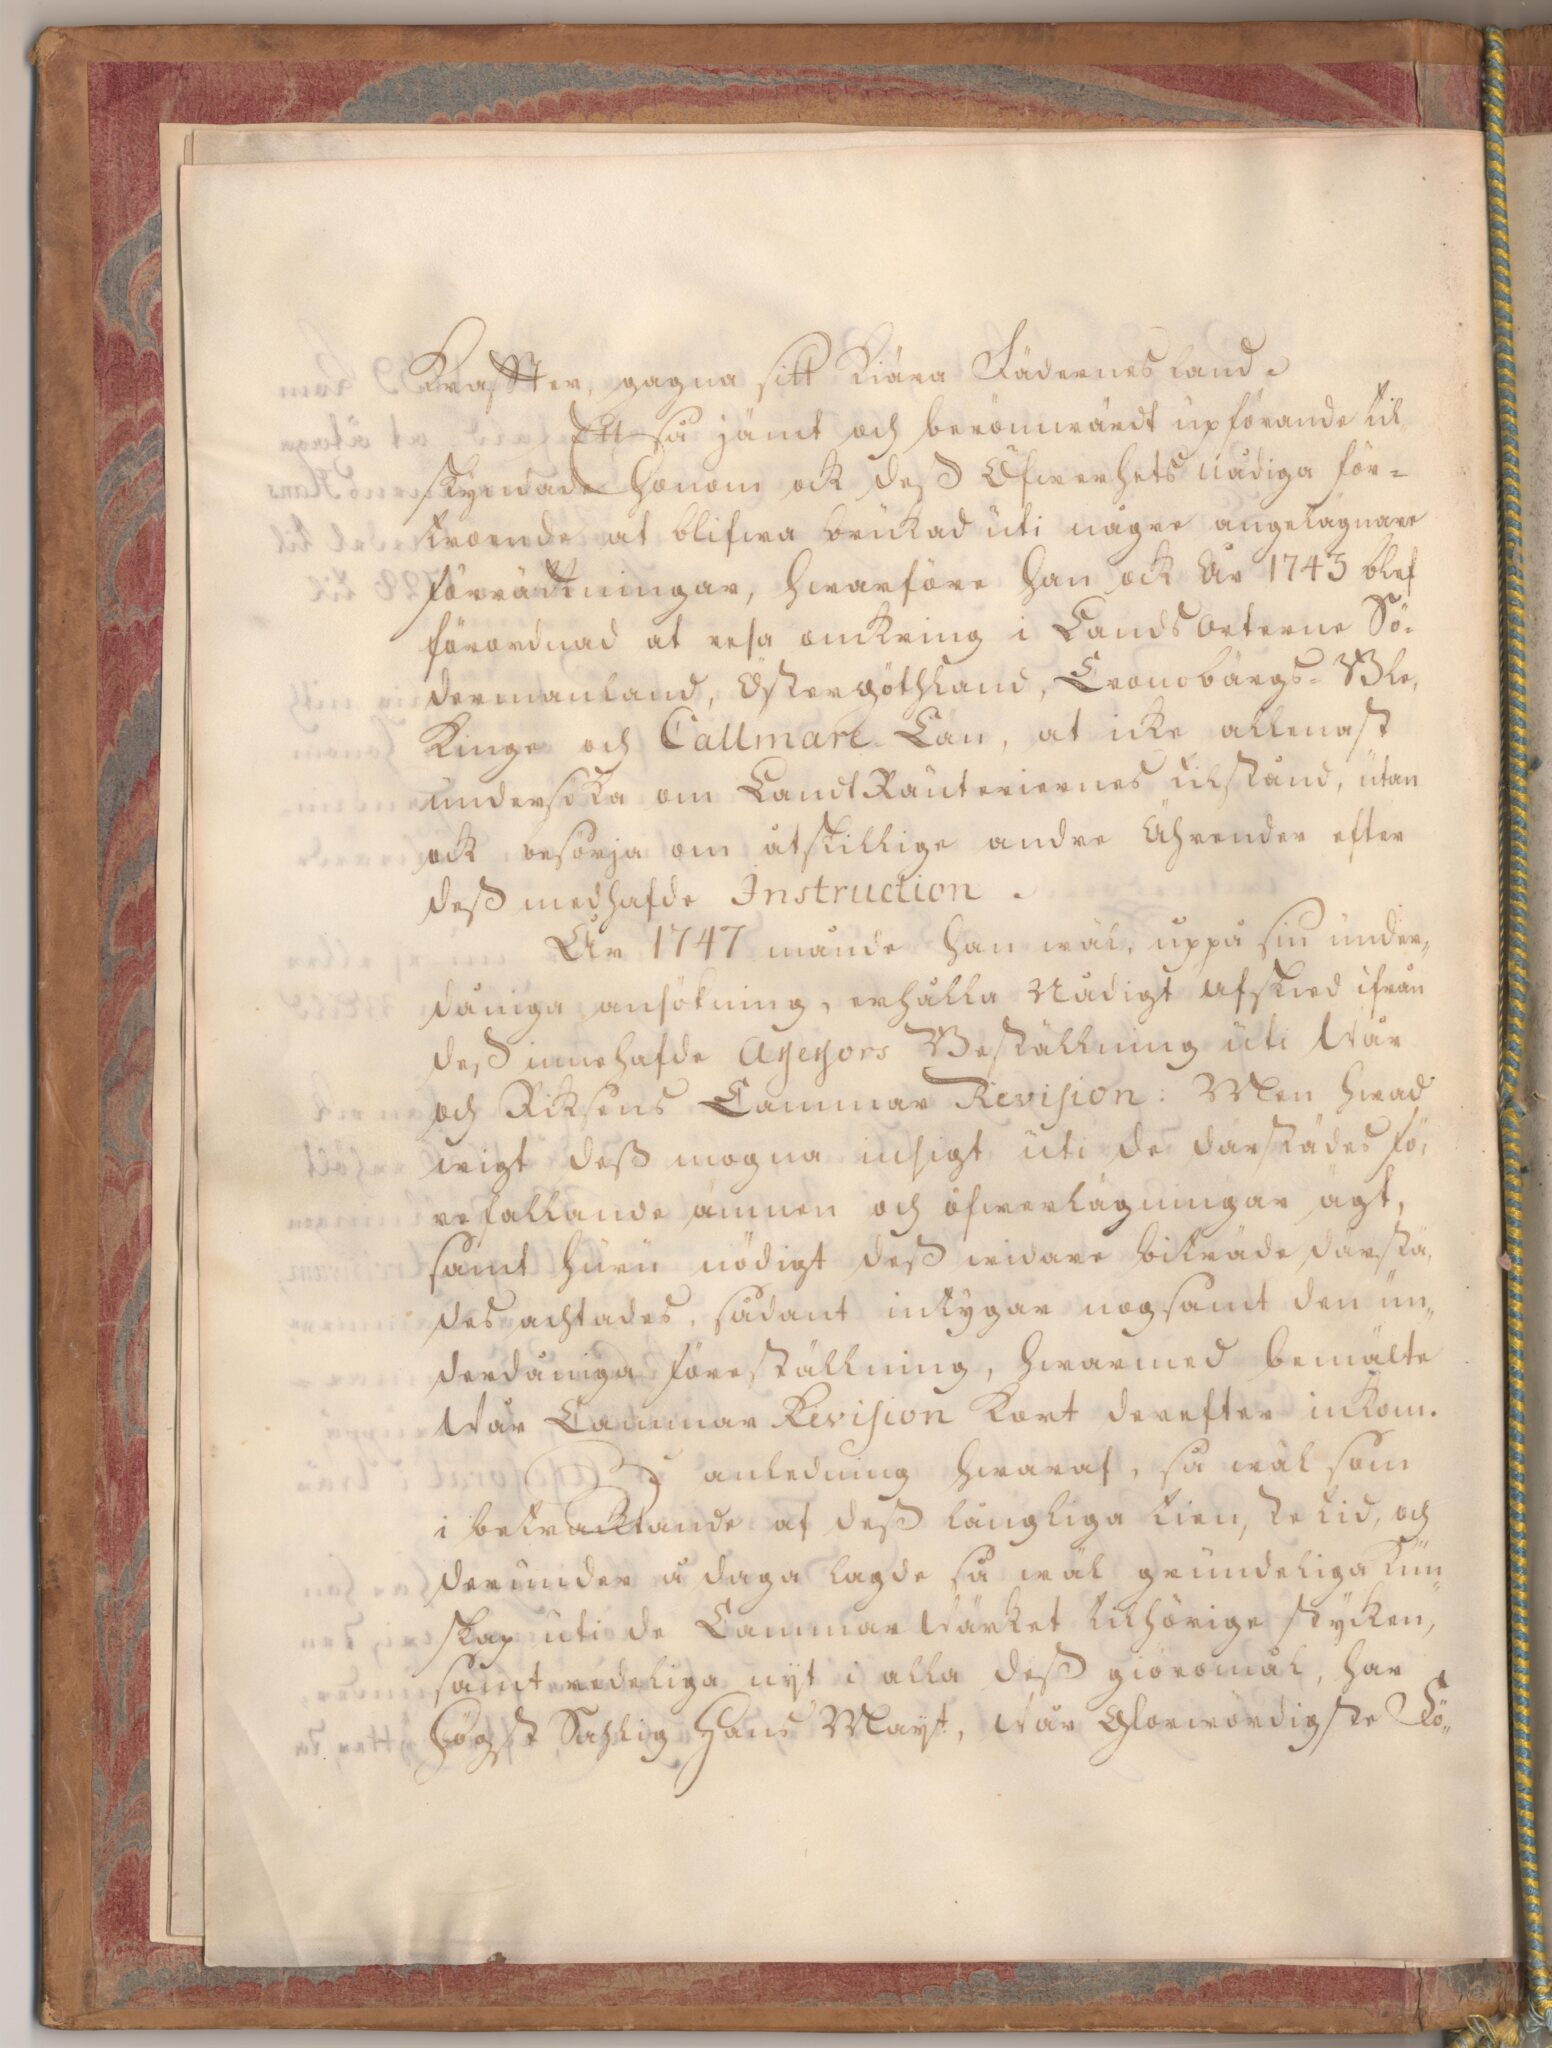 Kraffter, gagna sitt kiära Fädernesland.
Ett så jämt och berömwärdt upförande til
skyndade honom ock deß Öfwerhets nådiga för-
troende at blifwa brukad uti någre angelägnare
förrättningar, hwarföre han ock År 1743 blef
förordnad at resa omkring i Landsorterne Sö-
dermanland, Östergöthland, Cronobärgs- Ble,
kinge och Callmare Län, at icke allenast
undersöka om LandtRänteriernes tilstånd, utan
ock besörja om åtskillige andre Ährender efter
deß medhafde Instruction.
År 1747 månde han wäl, uppå sin under,
dåniga ansökning, erhålla Nådigt afsked ifrån
deß innehafde Assessors Beställning uti Wår
och Riksens Cammar Revision: Men hwad
wigt deß mogna insigt uti de därstädes fö,
refallande ämnen och öfwerlägningar ägt,
samt huru nödigt deß widare biträde därstä,
des achtades, sådant intygar nogsamt den un,
derdåniga föreställning, hwarmed bemälte
Wår Cammar Revision kort derefter inkom.
I anledning hwaraf, så wäl som
i betracktande af deß långliga tien, stetid, och
derunder å daga lagde så wäl grundeliga kun
skap uti de Cammar Wärket tilhörige stycken,
samt redeliga nyt i alla deß giöromål, har
Högst Sahlig Hans Mayst, Wår Glorwördigste Fö,